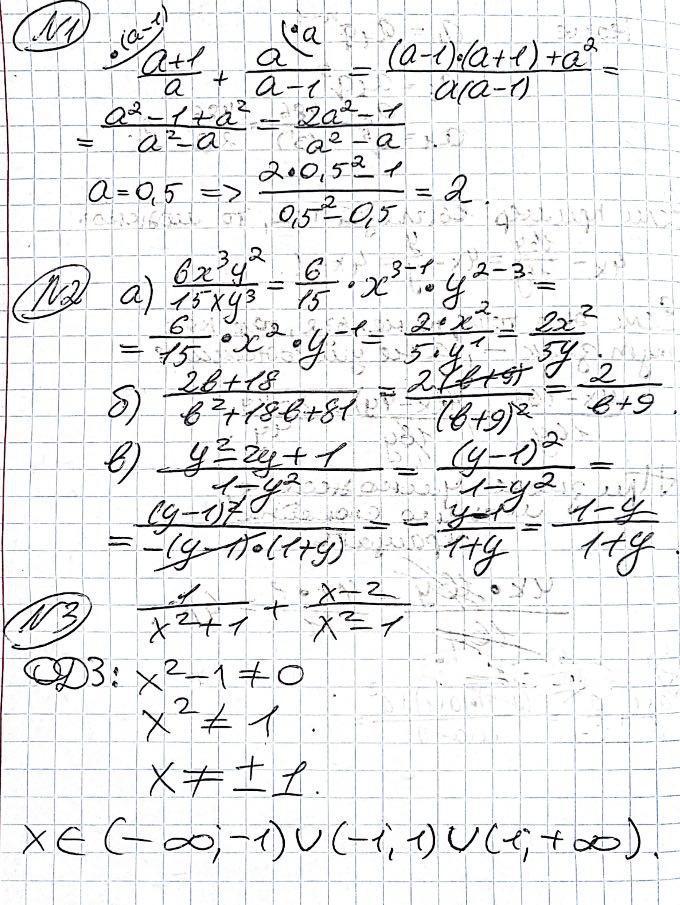 N1
·(a-1) ·a
(a+1)/a + a/(a-1) = ((a-1)·(a+1)+a²)/(a(a-1)) =
= (a²-1+a²)/(a²-a) = (2a²-1)/(a²-a).
a=0,5 => (2·0,5²-1)/(0,5²-0,5) = 2.
N2 а) 6x³y²/15xy³ = 6/15 · x³⁻¹ · y²⁻³ =
= 6/15 · x² · y⁻¹ = (2·x²)/(5·y¹) = 2x²/5y.
б) (2b+18)/(b²+18b+81) = 2(b+9)/(b+9)² = 2/(b+9).
в) (y²-2y+1)/(1-y²) = (y-1)²/(1-y²) =
= (y-1)²/(-(y-1)·(1+y)) = -(y-1)/(1+y) = (1-y)/(1+y).
N3 1/(x²+1) + (x-2)/(x²-1)
ОДЗ: x²-1≠0
x²≠1.
x≠±1.
x∈(-∞;-1)∪(-1;1)∪(1;+∞).